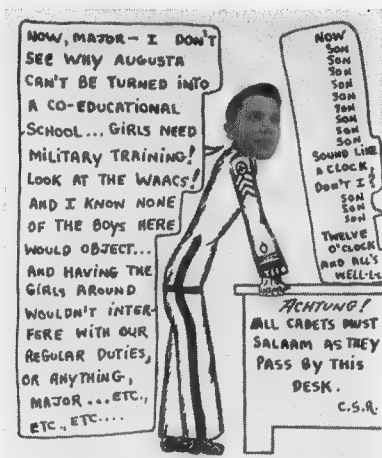 NOW, MAJOR — I DON'T
SEE WHY AUGUSTA
CAN'T BE TURNED INTO
A CO-EDUCATIONAL
SCHOOL... GIRLS NEED
MILITARY TRAINING!
LOOK AT THE WAACS!
AND I KNOW NONE
OF THE BOYS HERE
WOULD OBJECT...
AND HAVING THE
GIRLS AROUND
WOULDN'T INTER-
FERE WITH OUR
REGULAR DUTIES,
OR ANYTHING,
MAJOR ... ETC.,
ETC., ETC....
NOW
SON
SON
SON
SON
SON
SON
SON
SON
SOUND LIKE
A CLOCK,
DON'T I?
SON
SON
SON
TWELVE
O'CLOCK!
AND ALL'S
WELL-LL
ACHTUNG!
ALL CADETS MUST
SALAAM AS THEY
PASS BY THIS
DESK.
C.S.R.